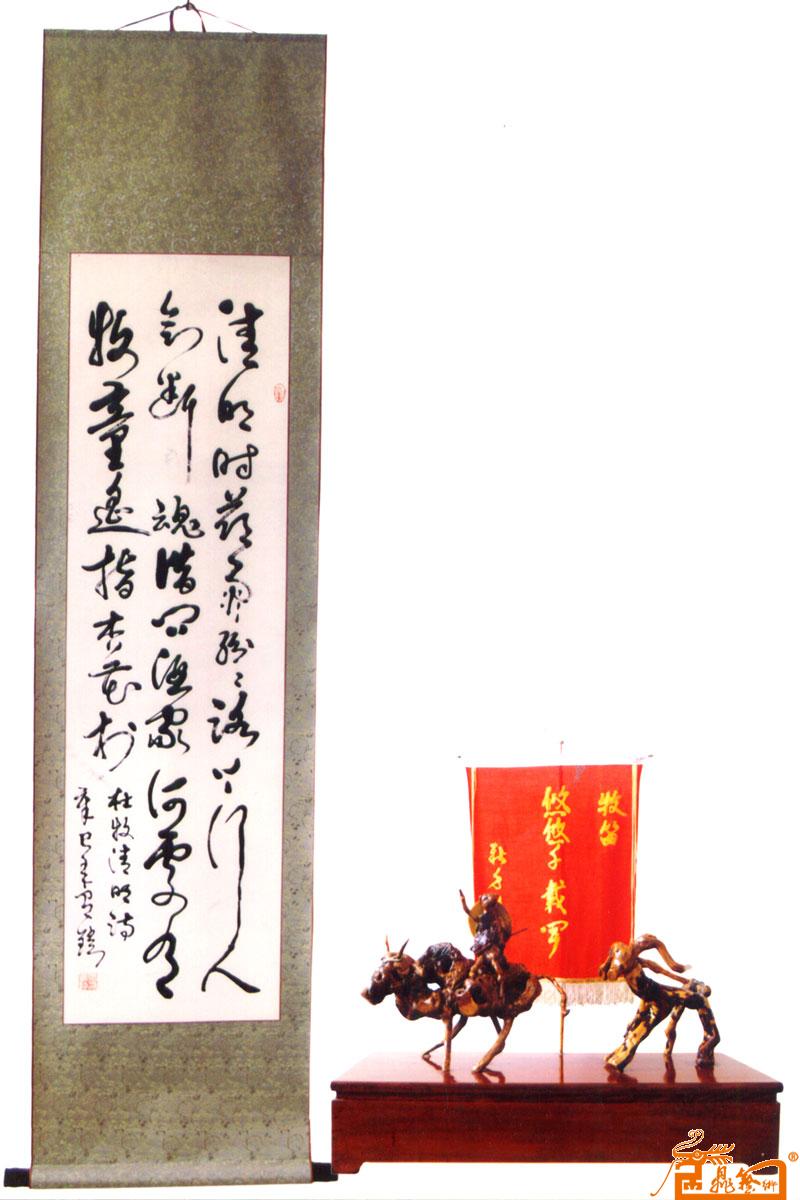 清明时节雨纷纷路上行人
欲断魂借问酒家何处有
牧童遥指杏花村
杜牧清明诗
辛巳
牧笛
悠悠千载